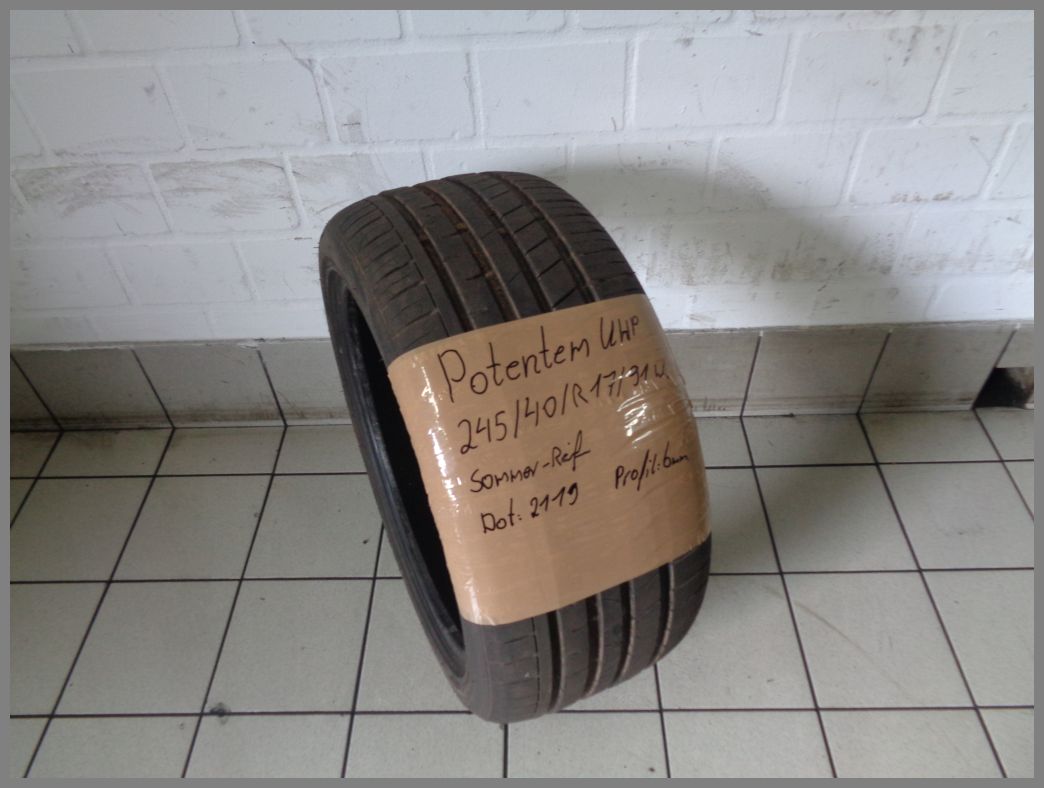 Potentem UHP
245/40/R17/91W
Sommer-Reif
Dot: 2119 Profil: 6mm